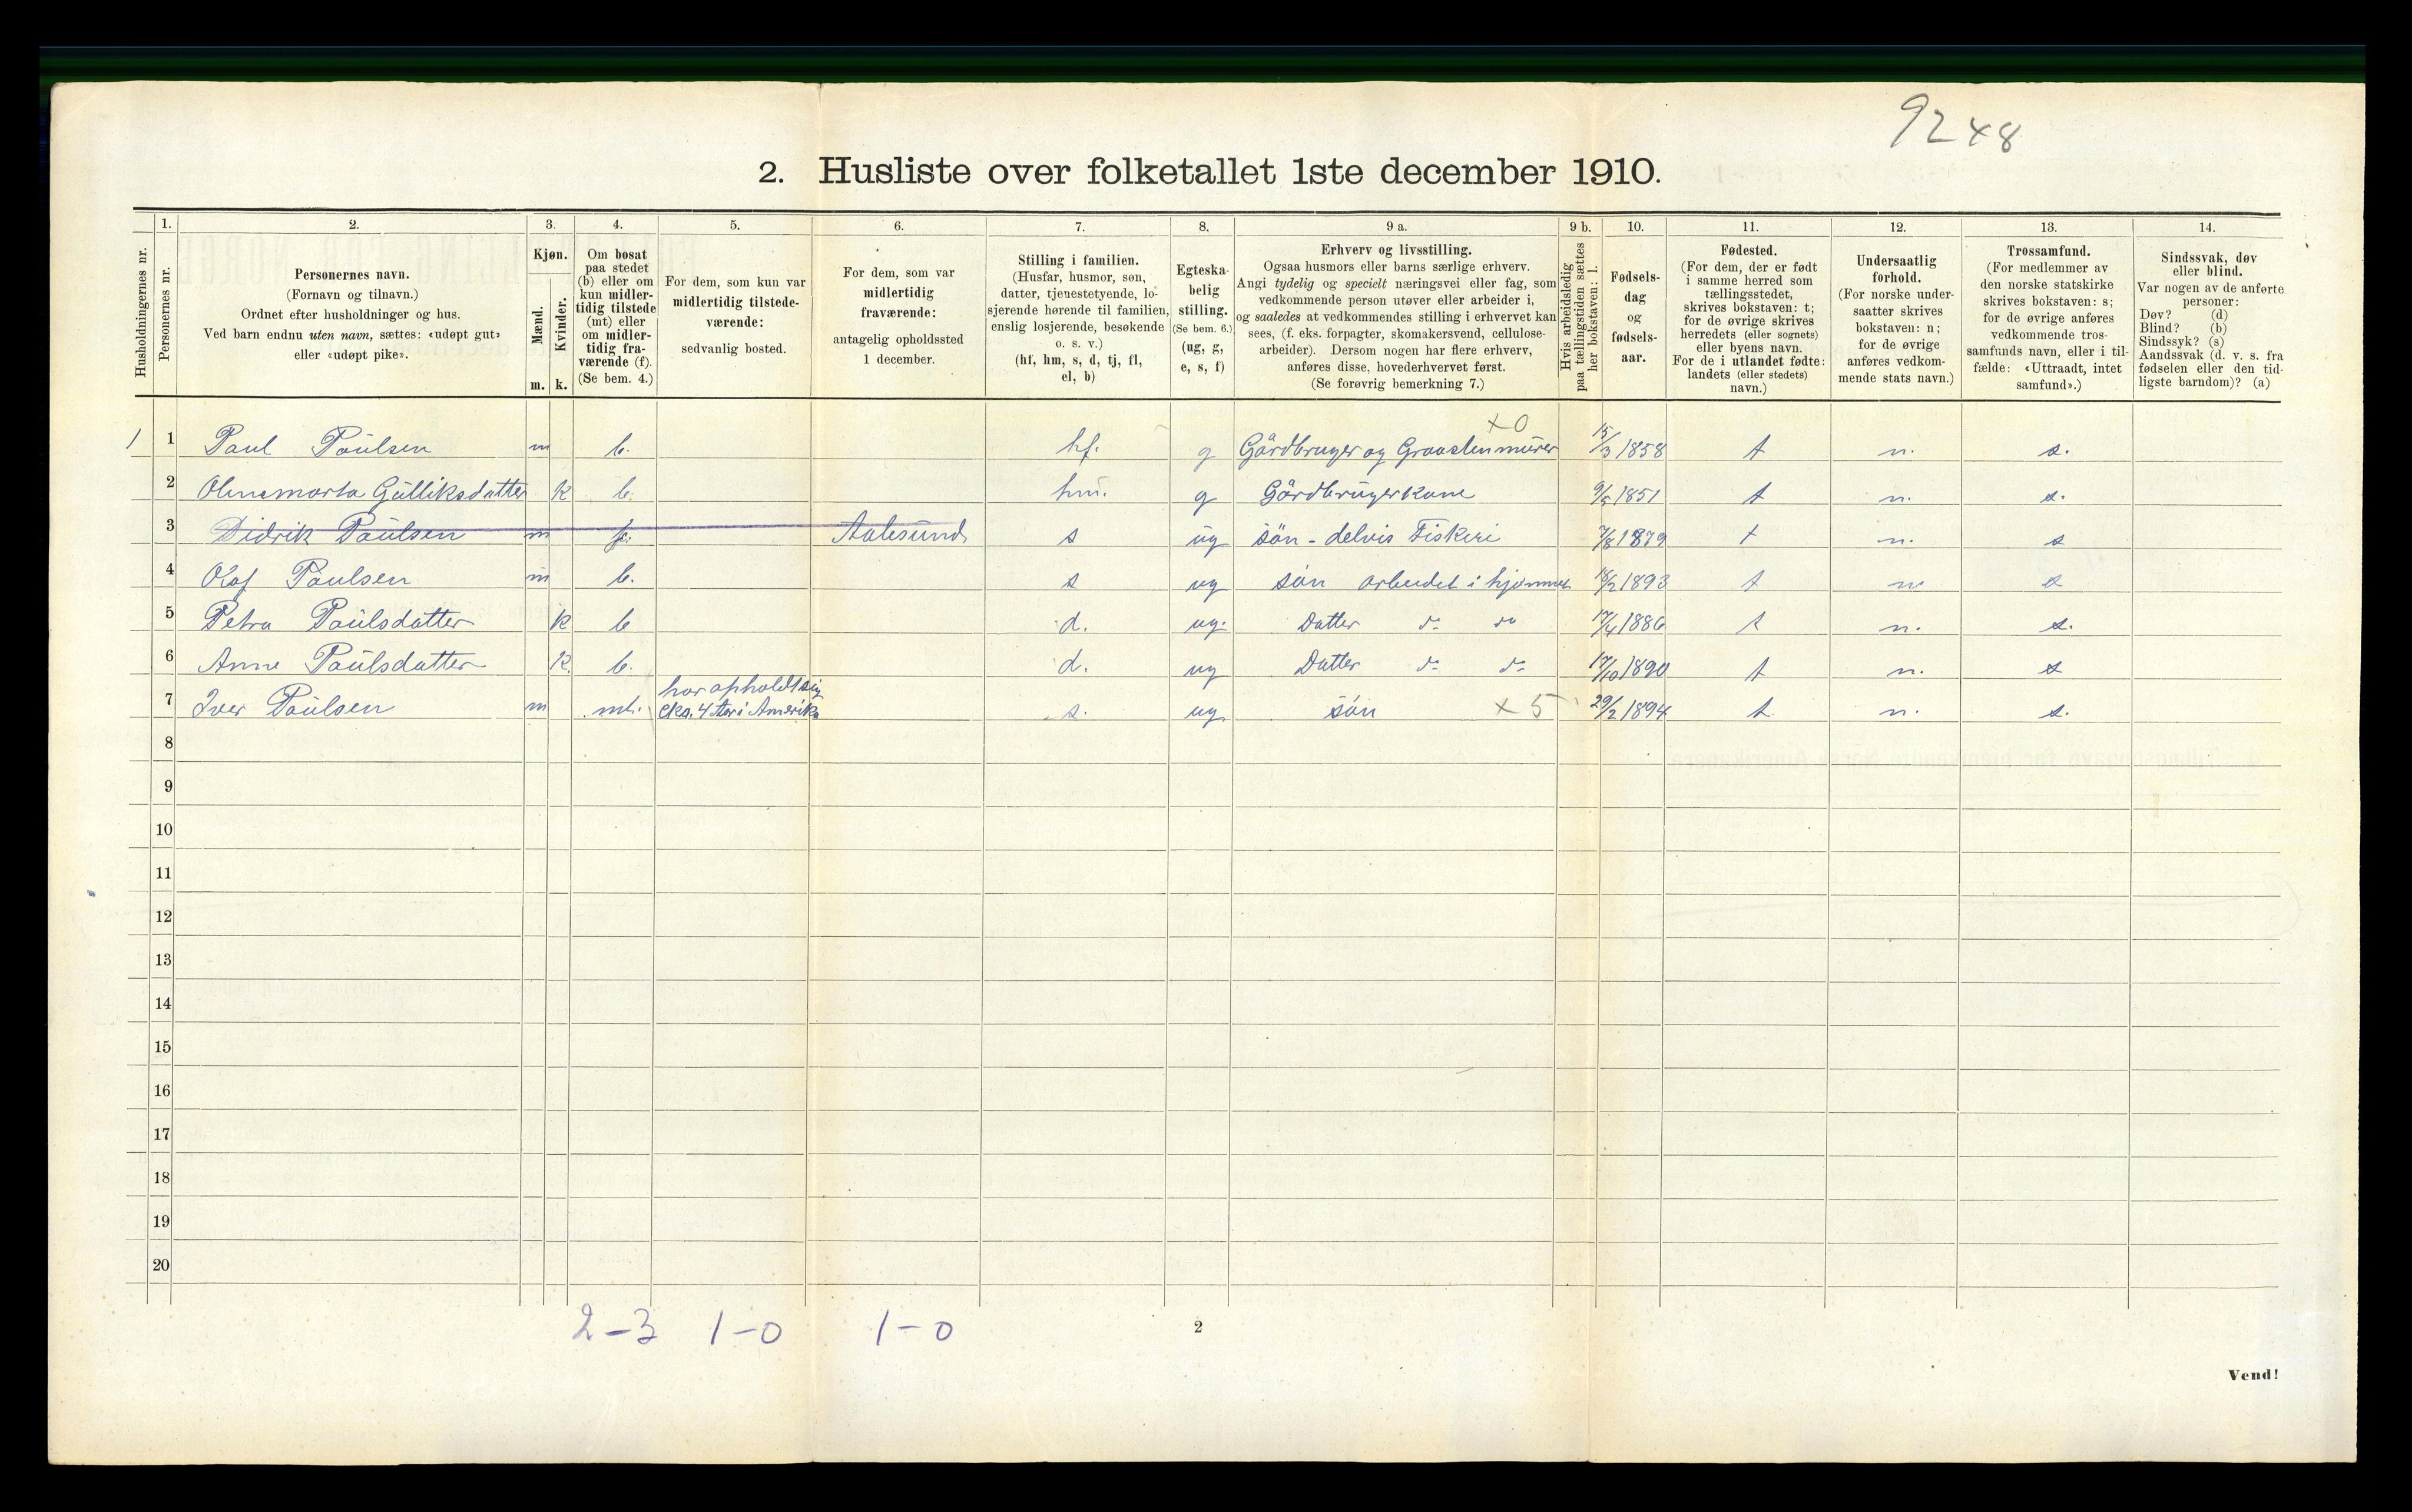 9248
2. Husliste over folketallet 1ste december 1910.
Husholdningernes nr.
1.
Personernes nr.
2.
Personernes navn.
(Fornavn og tilnavn.)
Ordnet efter husholdninger og hus.
Ved barn endnu uten navn, sættes: «udøpt gut»
eller «udøpt pike».
3.
Kjøn.
Mænd.
Kvinder.
m. k.
4.
Om bosat
paa stedet
(b) eller om
kun midler-
tidig tilstede
(mt) eller
om midler-
tidig fra-
værende (f).
(Se bem. 4.)
5.
For dem, som kun var
midlertidig tilstede-
værende:
sedvanlig bosted.
6.
For dem, som var
midlertidig
fraværende:
antagelig opholdssted
1 december.
7.
Stilling i familien.
(Husfar, husmor, søn,
datter, tjenestetyende, lo-
sjerende hørende til familien,
enslig losjerende, besøkende
o. s. v.)
(hf, hm, s, d, tj, fl,
el, b)
8.
Egteska-
belig
stilling.
(Se bem. 6.)
(ug, g,
e, s, f)
9 a.
Erhverv og livsstilling.
Ogsaa husmors eller barns særlige erhverv.
Angi tydelig og specielt næringsvei eller fag, som
vedkommende person utøver eller arbeider i,
og saaledes at vedkommendes stilling i erhvervet kan
sees, (f. eks. forpagter, skomakersvend, cellulose-
arbeider). Dersom nogen har flere erhverv,
anføres disse, hovederhvervet først.
(Se forøvrig bemerkning 7.)
9 b.
Hvis arbeidsledig
paa tællingstiden sættes
her bokstaven: l.
10.
Fødsels-
dag
og
fødsels-
aar.
11.
Fødested.
(For dem, der er født
i samme herred som
tællingsstedet,
skrives bokstaven: t;
for de øvrige skrives
herredets (eller sognets)
eller byens navn.
For de i utlandet fødte:
landets (eller stedets)
navn.)
12.
Undersaatlig
forhold.
(For norske under-
saatter skrives
bokstaven: n;
for de øvrige
anføres vedkom-
mende stats navn.)
13.
Trossamfund.
(For medlemmer av
den norske statskirke
skrives bokstaven: s;
for de øvrige anføres
vedkommende tros-
samfunds navn, eller i til-
fælde: «Uttraadt, intet
samfund».)
14.
Sindssvak, døv
eller blind.
Var nogen av de anførte
personer:
Døv? (d)
Blind? (b)
Sindssyk? (s)
Aandssvak (d. v. s. fra
fødselen eller den tid-
ligste barndom)? (a)
x0
1 1 Paul Paulsen m b. hf. g Gårdbruger og Graastenmurer 15/3 1858 t n. s.
2 Olinemarta Gulliksdatter k b. hm. g Gårdbrugerkone 9/5 1851 t n. s.
3 Didrik Paulsen m f. Aalesund s ug søn - delvis Fiskeri 7/8 1879 t n. s
4 Olaf Paulsen m b. s ug søn arbeidet i hjemmet 18/2 1893 t n s
5 Petra Paulsdatter k b d. ug. Datter do do 17/4 1886 t n. s.
6 Anne Paulsdatter k. b. d. ug Datter do do 17/10 1890 t n. s
har opholdt sig
7 Iver Paulsen m mt. eks. 4 Aar i Amerika s. ug søn x 5 29/2 1894 t n. s.
8
9
10
11
12
13
14
15
16
17
18
19
20
2-3 1-0 1-0
2
Vend!